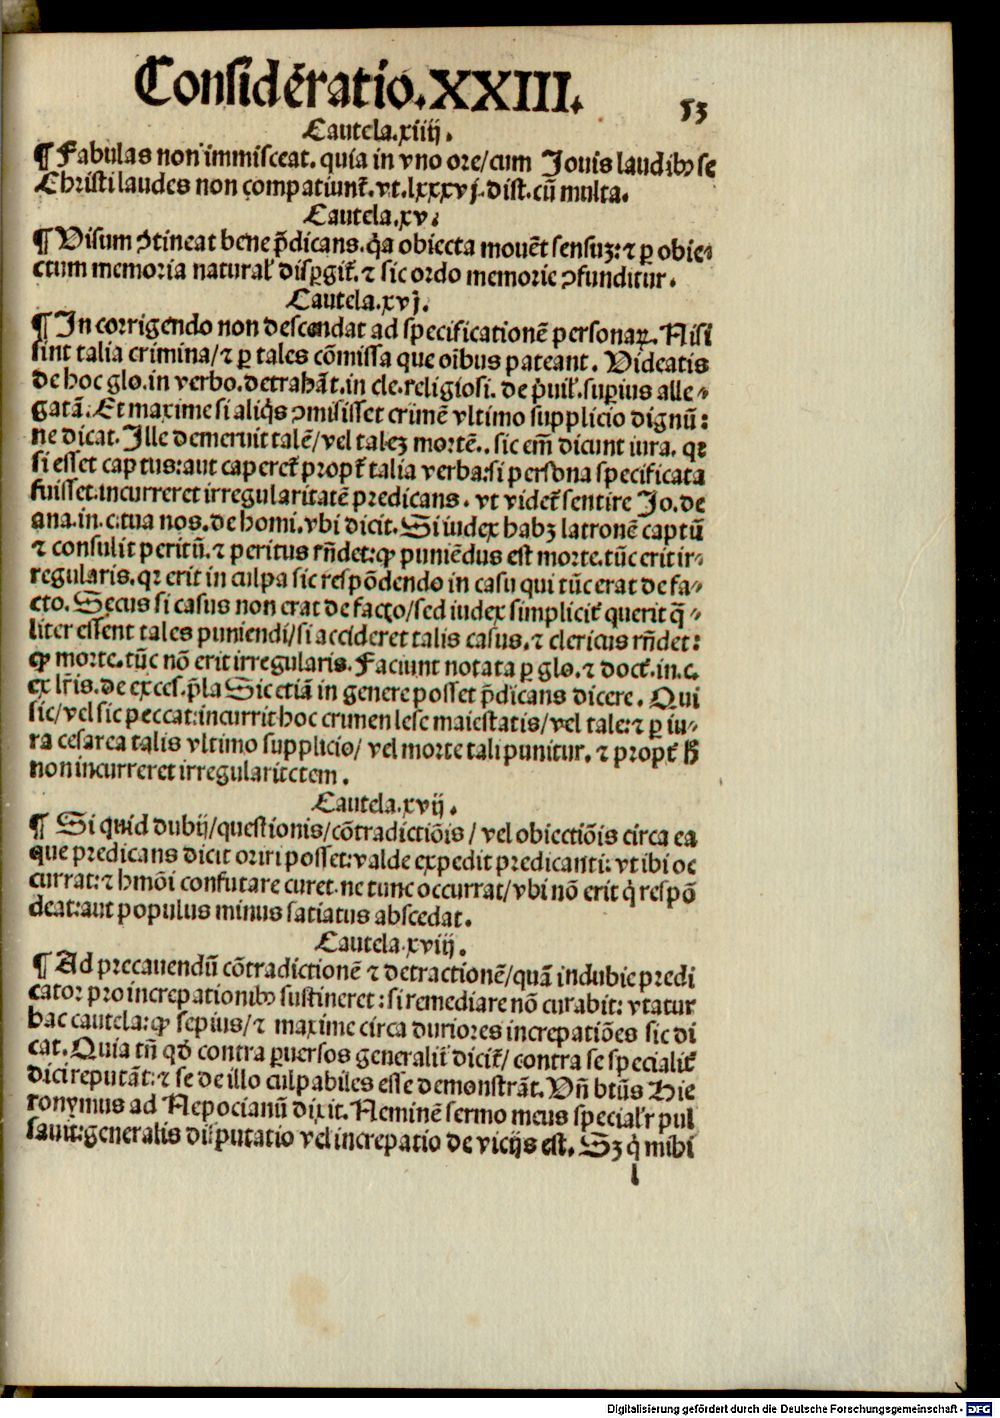 Considēratio.XXIII.
53
Cautela.xiiij.
¶ Fabulas non immisceat. quia in vno ore/cum Jouis laudibꝰ se
Christi laudes non compatiunt̄. vt.lxxxvj.dist.cū multa.
Cautela.xv.
¶ Visum ꝯtineat bene p̄dicans. q̇a obiecta mouēt sensuꝫ: ⁊ ꝑ obie⸗
ctum memoria natural' disꝑgit̄. ⁊ sic ordo memorie ꝯfunditur.
Cautela.xvj.
¶ In corrigendo non descendat ad specificationē personaꝝ. Nisi
sint talia crimina/⁊ ꝑ tales cōmissa que oībus pateant. Videatis
de hoc glo.in verbo.detrahāt.in cle.religiosi. de p̄uil'.suꝑius alle⸗
gatā. Et maxime si aliq̇s ꝯmisisset crimē vltimo supplicio dignū:
ne dicat. Ille demeruit talē/vel taleꝫ mortē.. sic em̄ dicunt iura. qꝛ
si esset captus: aut caperet̄ propt̄ talia verba: si persona specificata
fuisset. incurreret irregularitatē predicans. vt videt̄ sentire Jo.de
ana.in.c.tua nos.de homi.vbi dicit. Si iudex habꝫ latronē captū
⁊ consulit peritū. ⁊ peritus rn̄det: ꝙ puniēdus est morte. tūc erit ir⸗
regularis. qꝛ erit in culpa sic respōdendo in casu qui tūc erat de fa⸗
cto. Secus si casus non erat de facto/sed iudex simplicit̄ querit q̄⸗
liter essent tales puniendi/si accideret talis casus. ⁊ clericus rn̄det:
ꝙ morte. tūc nō erit irregularis. Faciunt notata ꝑ glo. ⁊ doct̄. in.c.
ex lr̄is. de exces. p̄la Sic etiā in genere posset p̄dicans dicere. Qui
sic/vel sic peccat: incurrit hoc crimen lese maiestatis/vel tale: ⁊ ꝑ iu⸗
ra cesarea talis vltimo supplicio/ vel morte tali punitur. ⁊ propt̄ h̄
non incurreret irregularitctem.
Cautela.xvij.
¶ Si quid dubij/questionis/cōtradictiōis/ vel obiectiōis circa ea
que predicans dicit oriri posset: valde expedit predicanti: vt ibi oc
currat: ⁊ hmōi confutare curet. ne tunc occurrat/vbi nō erit q̇ respō
deat: aut populus minus satiatus abscedat.
Cautela.xviij.
¶ Ad precauendū cōtradictionē ⁊ detractionē/quā indubie predi
cator pro increpationibꝰ sustineret: si remediare nō curabit: vtatur
hac cautela: ꝙ sepius/⁊ maxime circa duriores increpatiōes sic di
cat. Quia tn̄ qd̄ contra ꝑuersos generalit̄ dicit̄/ contra se specialit̄
dici reputāt: ⁊ se de illo culpabiles esse demonstrāt. Vn̄ btūs Hie
ronymus ad Nepocianū dixit. Neminē sermo meus special'r pul
sauit: generalis disputatio vel increpatio de vicijs est. Sꝫ q̇ mihi
l
Digitalisierung gefördert durch die Deutsche Forschungsgemeinschaft - DFG